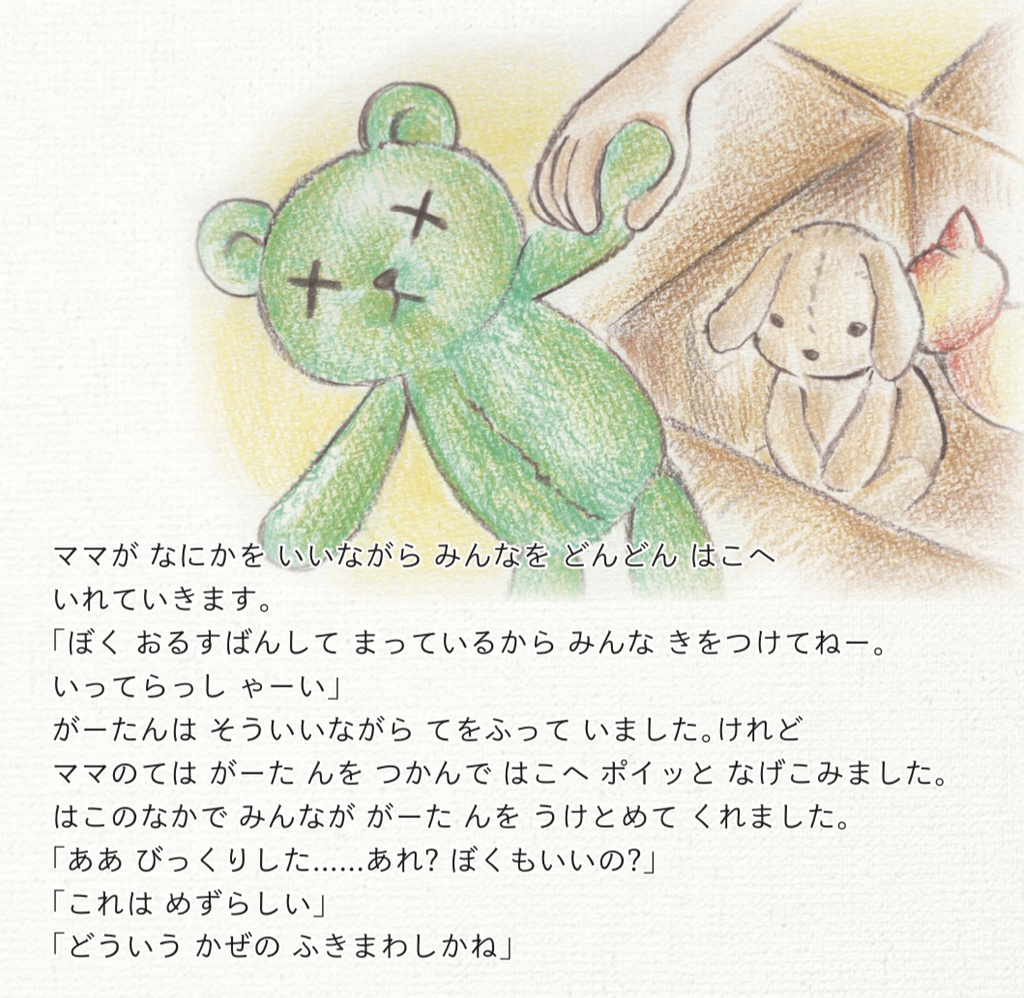 ママが なにかを いいながら みんなを どんどん はこへ
いれていきます。
「ぼく おるすばんして まっているから みんな きをつけてねー。
いってらっし ゃーい」
がーたんは そういいながら てをふって いました。けれど
ママのては がーた んを つかんで はこへ ポイッと なげこみました。
はこのなかで みんなが がーた んを うけとめて くれました。
「ああ びっくりした……あれ? ぼくもいいの?」
「これは めずらしい」
「どういう かぜの ふきまわしかね」